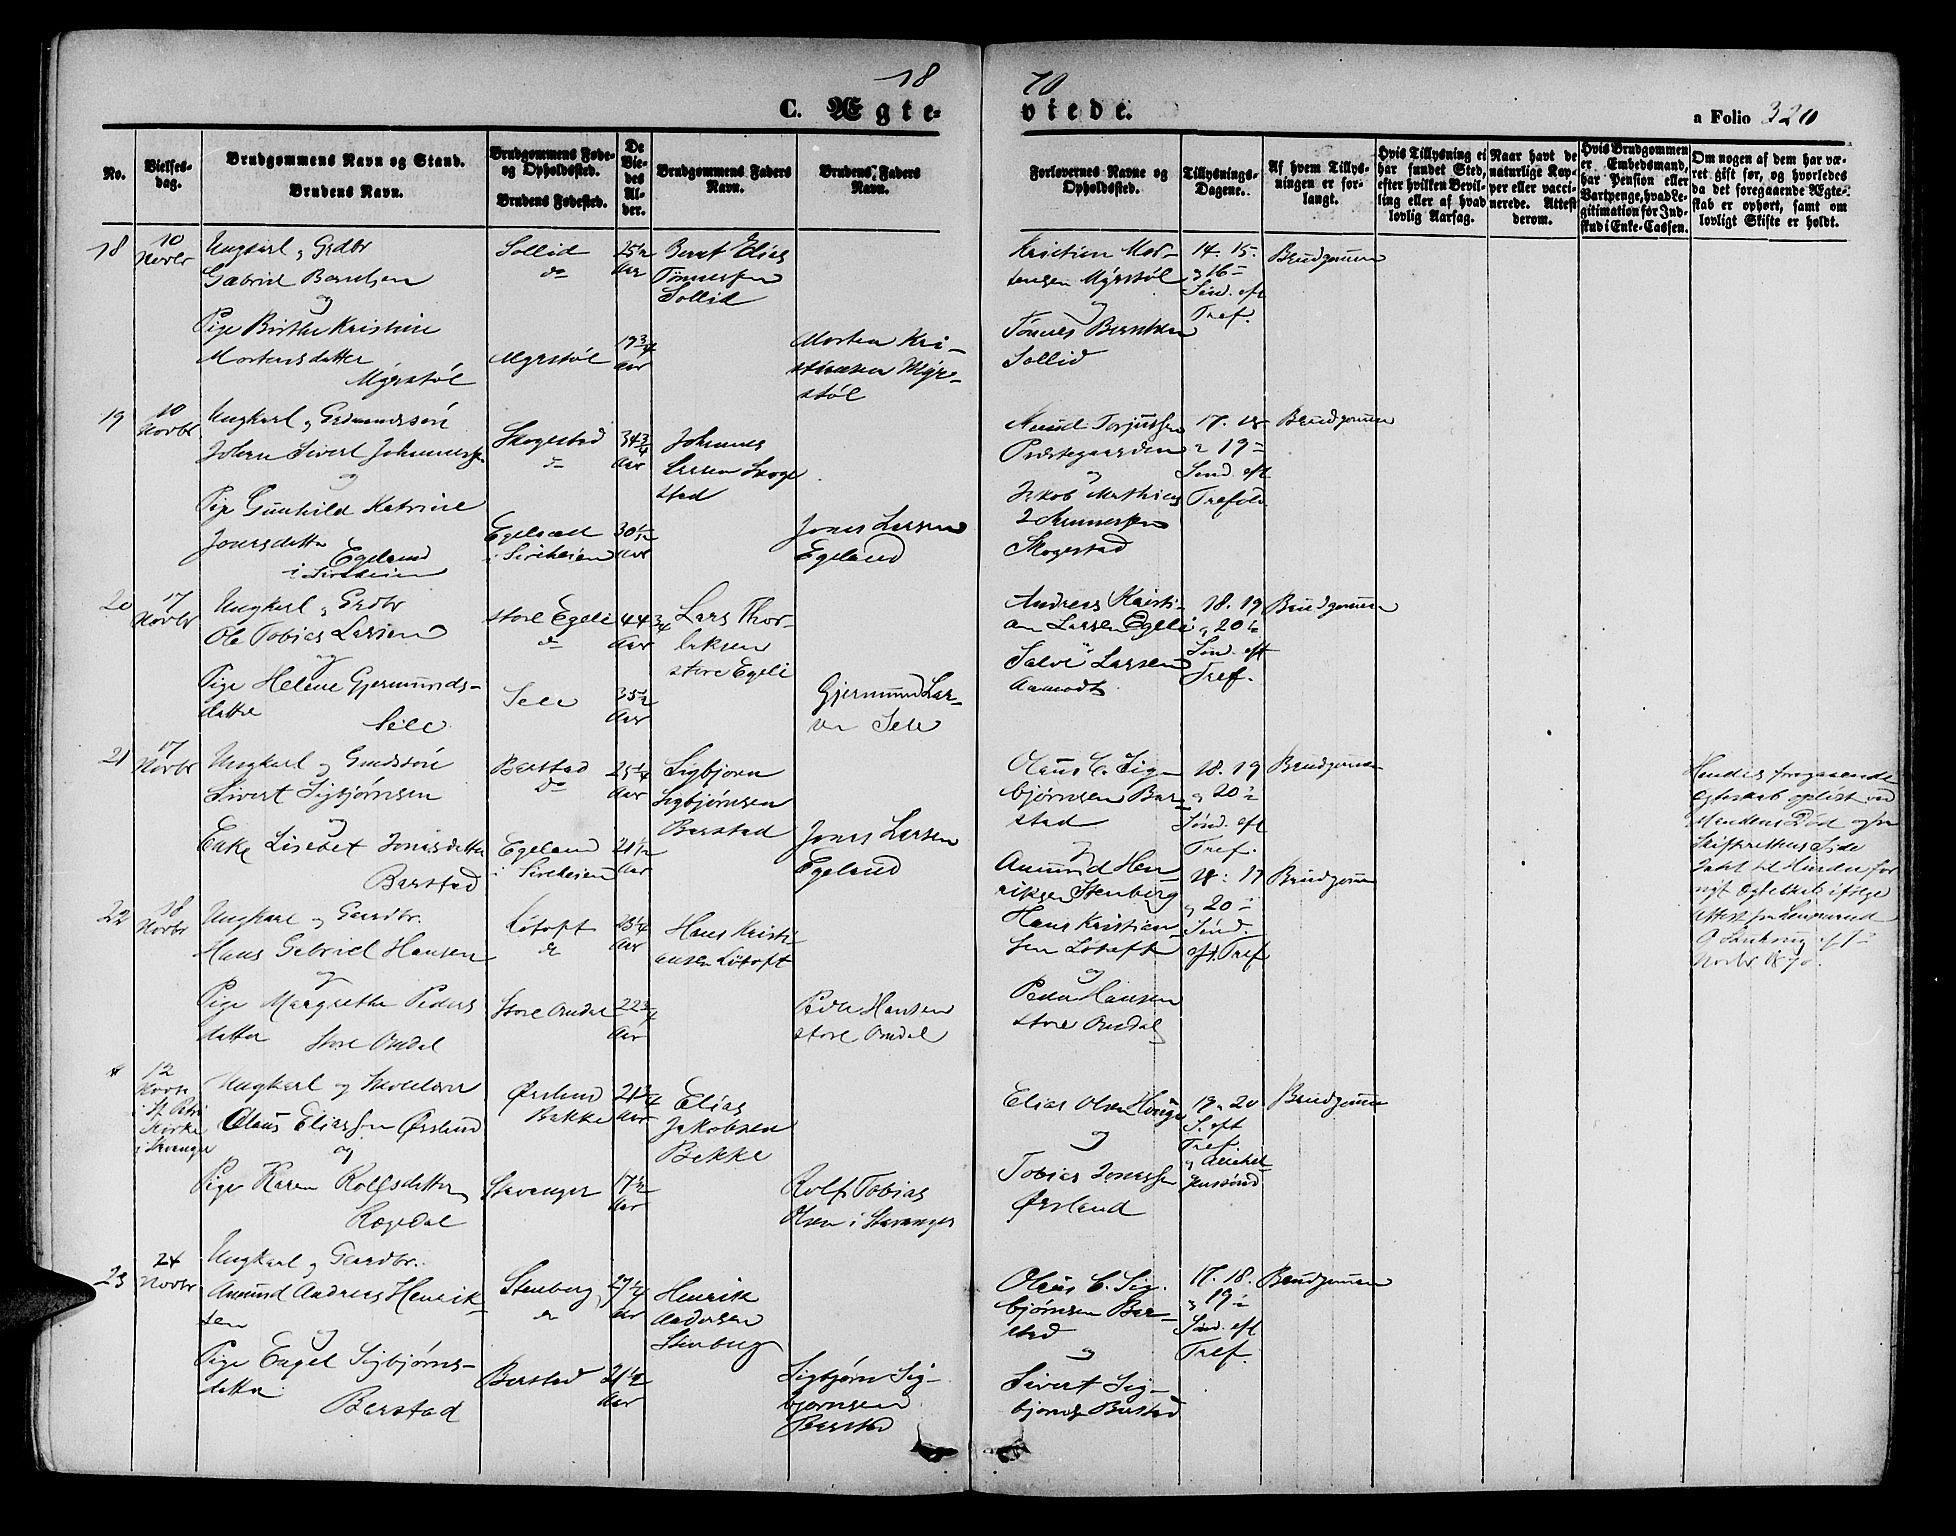 18 70
C. Ægte- viede.
a Folio 320
No.
Vielses-
dag.
Brudgommens Navn og Stand.
Brudens Navn.
Brudgommens Føde-
og Opholdssted.
Brudens Fødested.
De
Vie-
des
Al-
der.
Brudgommens Faders
Navn.
Brudens Faders
Navn.
Forlovernes Navne og
Opholdssted.
Tillysnings-
Dagene.
Af hvem Tillys-
ningen er for-
langt.
Hvis Tillysning ei
har fundet Sted,
efter hvilken Bevil-
ling eller af hvad
lovlig Aarsag.
Naar havt de
naturlige Kop-
per eller vacci-
nerede. Attest
derom.
Hvis Brudgommen
er Embedsmand,
har Pension eller
Vartpenge, hvad Le-
gitimation for Ind-
skud i Enke-Cassen.
Om nogen af dem har væ-
ret gift før, og hvorledes
da det foregaaende Ægte-
skab er ophørt, samt om
lovligt Skifte er holdt.
18
10
Novbr
Ungkarl og Grdbr
Gabriel Berntsen
og
Pige Birthe Kristine
Mortensdatter
Myrstøl
Sollid
do
Myrstøl
25½
Aar
19¾
Aar
Bernt Elias
Tønnessen
Sollid
Morten Kri-
stiansen Myr-
støl
Kristian Mor-
tensen Myrstøl
og
Tønnes Berntsen
Sollid
14. 15.
og 16
Sønd. eft
Tref.
Brudgommen
19
10
Novbr
Ungkarl og Grdmandssøn
Johan Sivert Johanness.
og
Pige Gunhild Katrine
Jonasdatter
Egeland
i Sireheien
Skogestad
do
Egeland
i Sireheien
34¾
Aar
30½
Aar
Johannes
Larsen Skoge
stad
Jonas Larsen
Egeland
Torjussen
Præstegaarden
og
Jakob Mathias
Johannessen
Skogestad
17. 18
og 19
Sønd. eft
Trefold
Brudgommen
20
17
Novbr
Ungkarl og Grdbr
Ole Tobias Larsen
og
Pige Helene Gjermunds-
datter
Sele
store Egeli
do
Sele
44¾
Aar
35½
Aar
Lars Thor-
laksen
store Egeli
Gjermund Lar-
sen Sele
Andreas Kristi-
an Larsen Egeli
Salve Larsen
Aamodt
18. 19
og 20
Sønd. eft
Tref.
Brudgommen
21
17
Novbr
Ungkarl og Grdssøn
Sivert Sigbjørnsen
og
Enke Lisebet Jonasdatter
Barstad
Barstad
do
Egeland
i Sireheien
25¼
Aar
21½
Aar
Sigbjørn
Sigbjørnsen
Barstad
Jonas Larsen
Egeland
Olaus C. Sig-
bjørnsen Bar-
stad
og
Amund Hen-
riksen Stenberg
18. 19
og 20
Sønd. eft
Tref.
Brudgommen
Hendes foregaaende
Egteskab opløst ved
Mandens Død og fra
Skifterettens Side
Intet til Hinder for
nyt Egteskab ifølge
Attest fra Lensmand
Novbr 1870
22
18
Novbr
Ungkarl og Gaardbr.
Hans Gabriel Hansen
og
Pige Margrethe Peders
datter
Store Omdal
Løtoft
do
Store Omdal
Aar
22¾
Aar
Hans Kristi
ansen Løtoft
Peder Hansen
store Omdal
Hans Kristian
sen Løtoft
og
Peder Hansen
store Omdal
18. 19
og 20
Sønd.
eft. Tref
Brudgommen
12
Novbr
i St. Petri
Kirke
i Stavanger
Ungkarl og Skolelærer
Olaus Eliassen Ørsland
og
Pige Karen Rolfsdatter
Rægedal
Ørsland
Bakke
Stavanger
21¾
Aar
17½
Aar
Elias
Jakobsen
Bakke
Rolf Tobias
Olsen i Stavanger
Elias Olsen Hauge
og
Tobias Jonassen
Ørsland
19 og 20
S. eft
Tref.
Brudgommen
23
24
Novbr
Ungkarl og Gaardbr.
Amund Andreas Henrik-
sen
og
Pige Engel Sigbjørns-
datter
Barstad
Stenberg
do
Barstad
Aar
21½
Aar
Henrik
Andersen
Stenberg
Sigbjørn Sig-
bjørnsen
Barstad
Olaus C. Sig-
bjørnsen Bar-
stad
og
Sivert Sig-
bjørns. Barstad
17. 18.
og 19
Sønd. eft
Tref.
Brudgommen